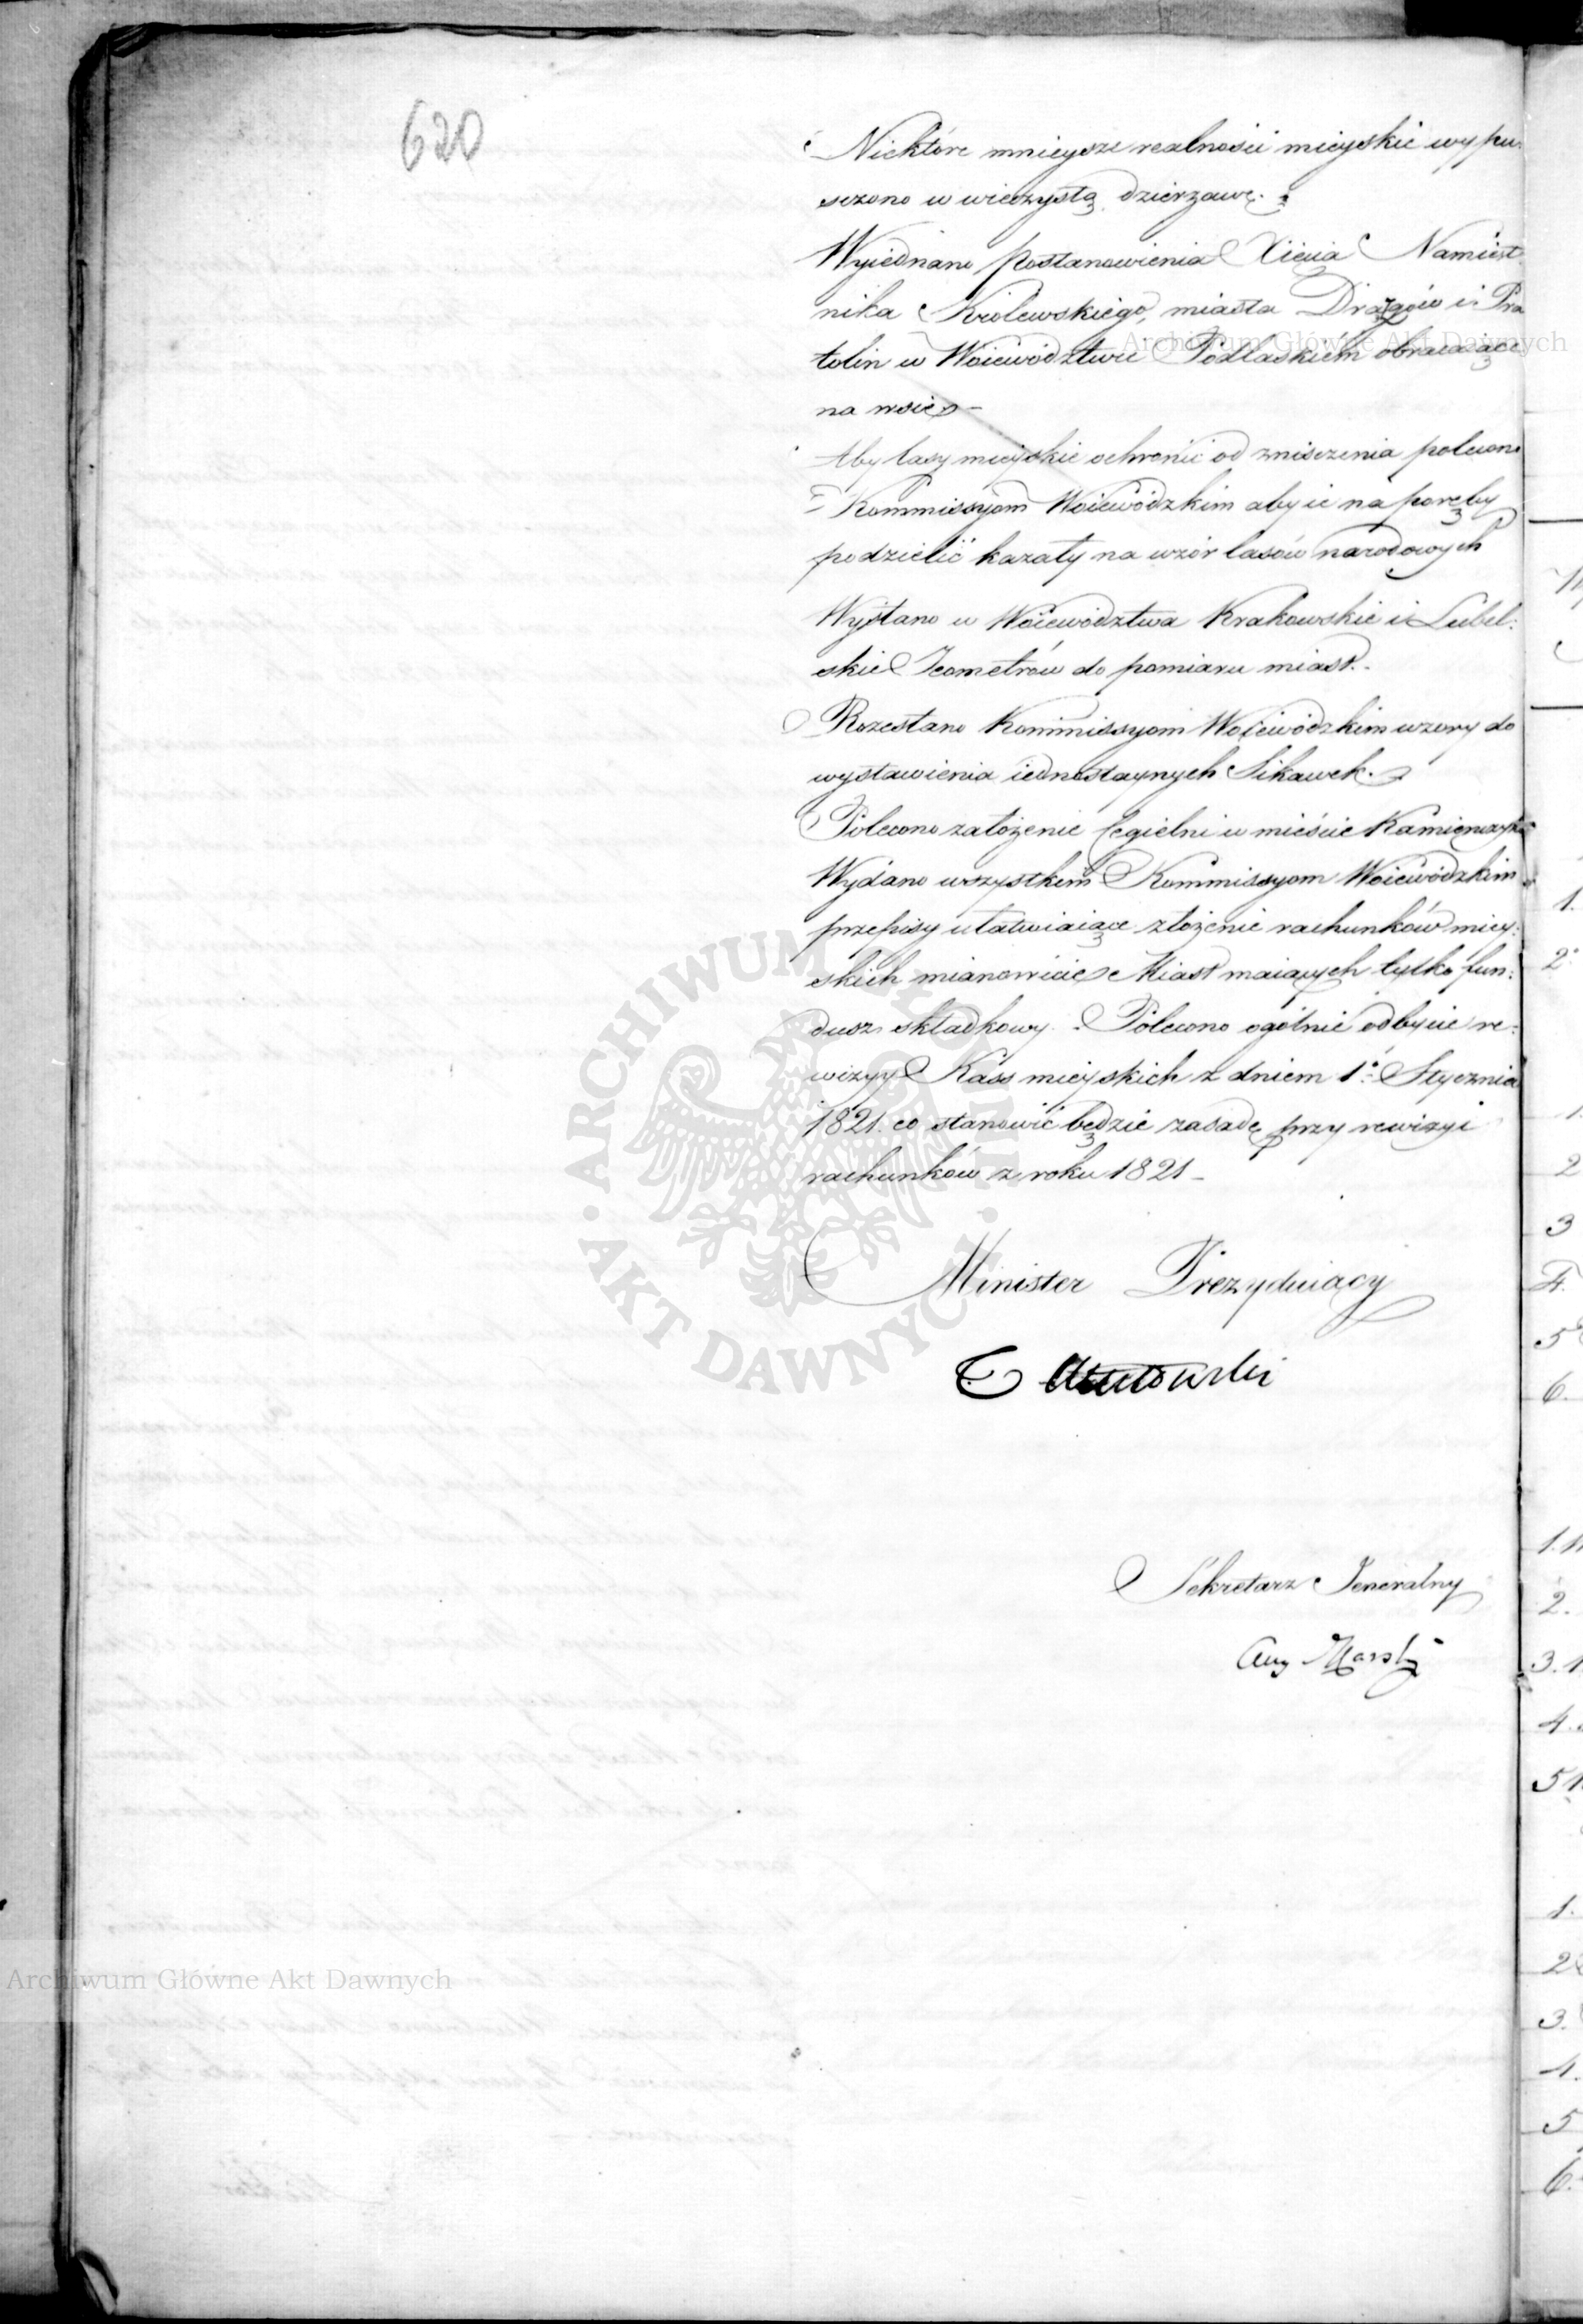 620
Niektóre mnieysze realności mieyskie wypu-
szczono w wieczystą dzierzawę.
Wyiednano postanowienia Xięcia Namiest
nika Królewskiego, miasta Drązgów i Pra
tolin w Woiewództwie Podlaskiém obracaiące
na wsie –
Aby lasy mieyskie ochronić od zniszczenia polecono
Kommissyom Woiewódzkim aby ie na poręby
podzielić kazały na wzór lasów narodowych
Wysłano w Woiewództwa Krakowskie i Lubel:
skie Jeometrów do pomiaru miast.
Rozesłano Kommissyom Woiewódzkim wzory do
wystawienia iednostaynych Sikawek.
Polecono założenie Cegielni w mieście Kamieńczyku
Wydano wszystkim Kommissyom Woiewódzkim
przepisy ułatwiaiące złożenie rachunków miey:
skich mianowicie Miast maiących tylko fun:
dusz składkowy. Polecono ogólnie odbycie re:
wizyy Kass mieyskich z dniem 1. Stycznia
1821. co stanowić będzie zasadę przy rewizyi
rachunków z roku 1821 –
Minister Prezyduiący
Sekretarz Jeneralny
Aug Karski
Archiwum Główne Akt Dawnych
Archiwum Główne Akt Dawnych
ARCHIWUM GŁÓWNE · AKT DAWNYCH ·
1.
2
1.
2
3
4.
5
6.
1.
2.
3.
4.
5
1.
2
3.
4.
5
6.